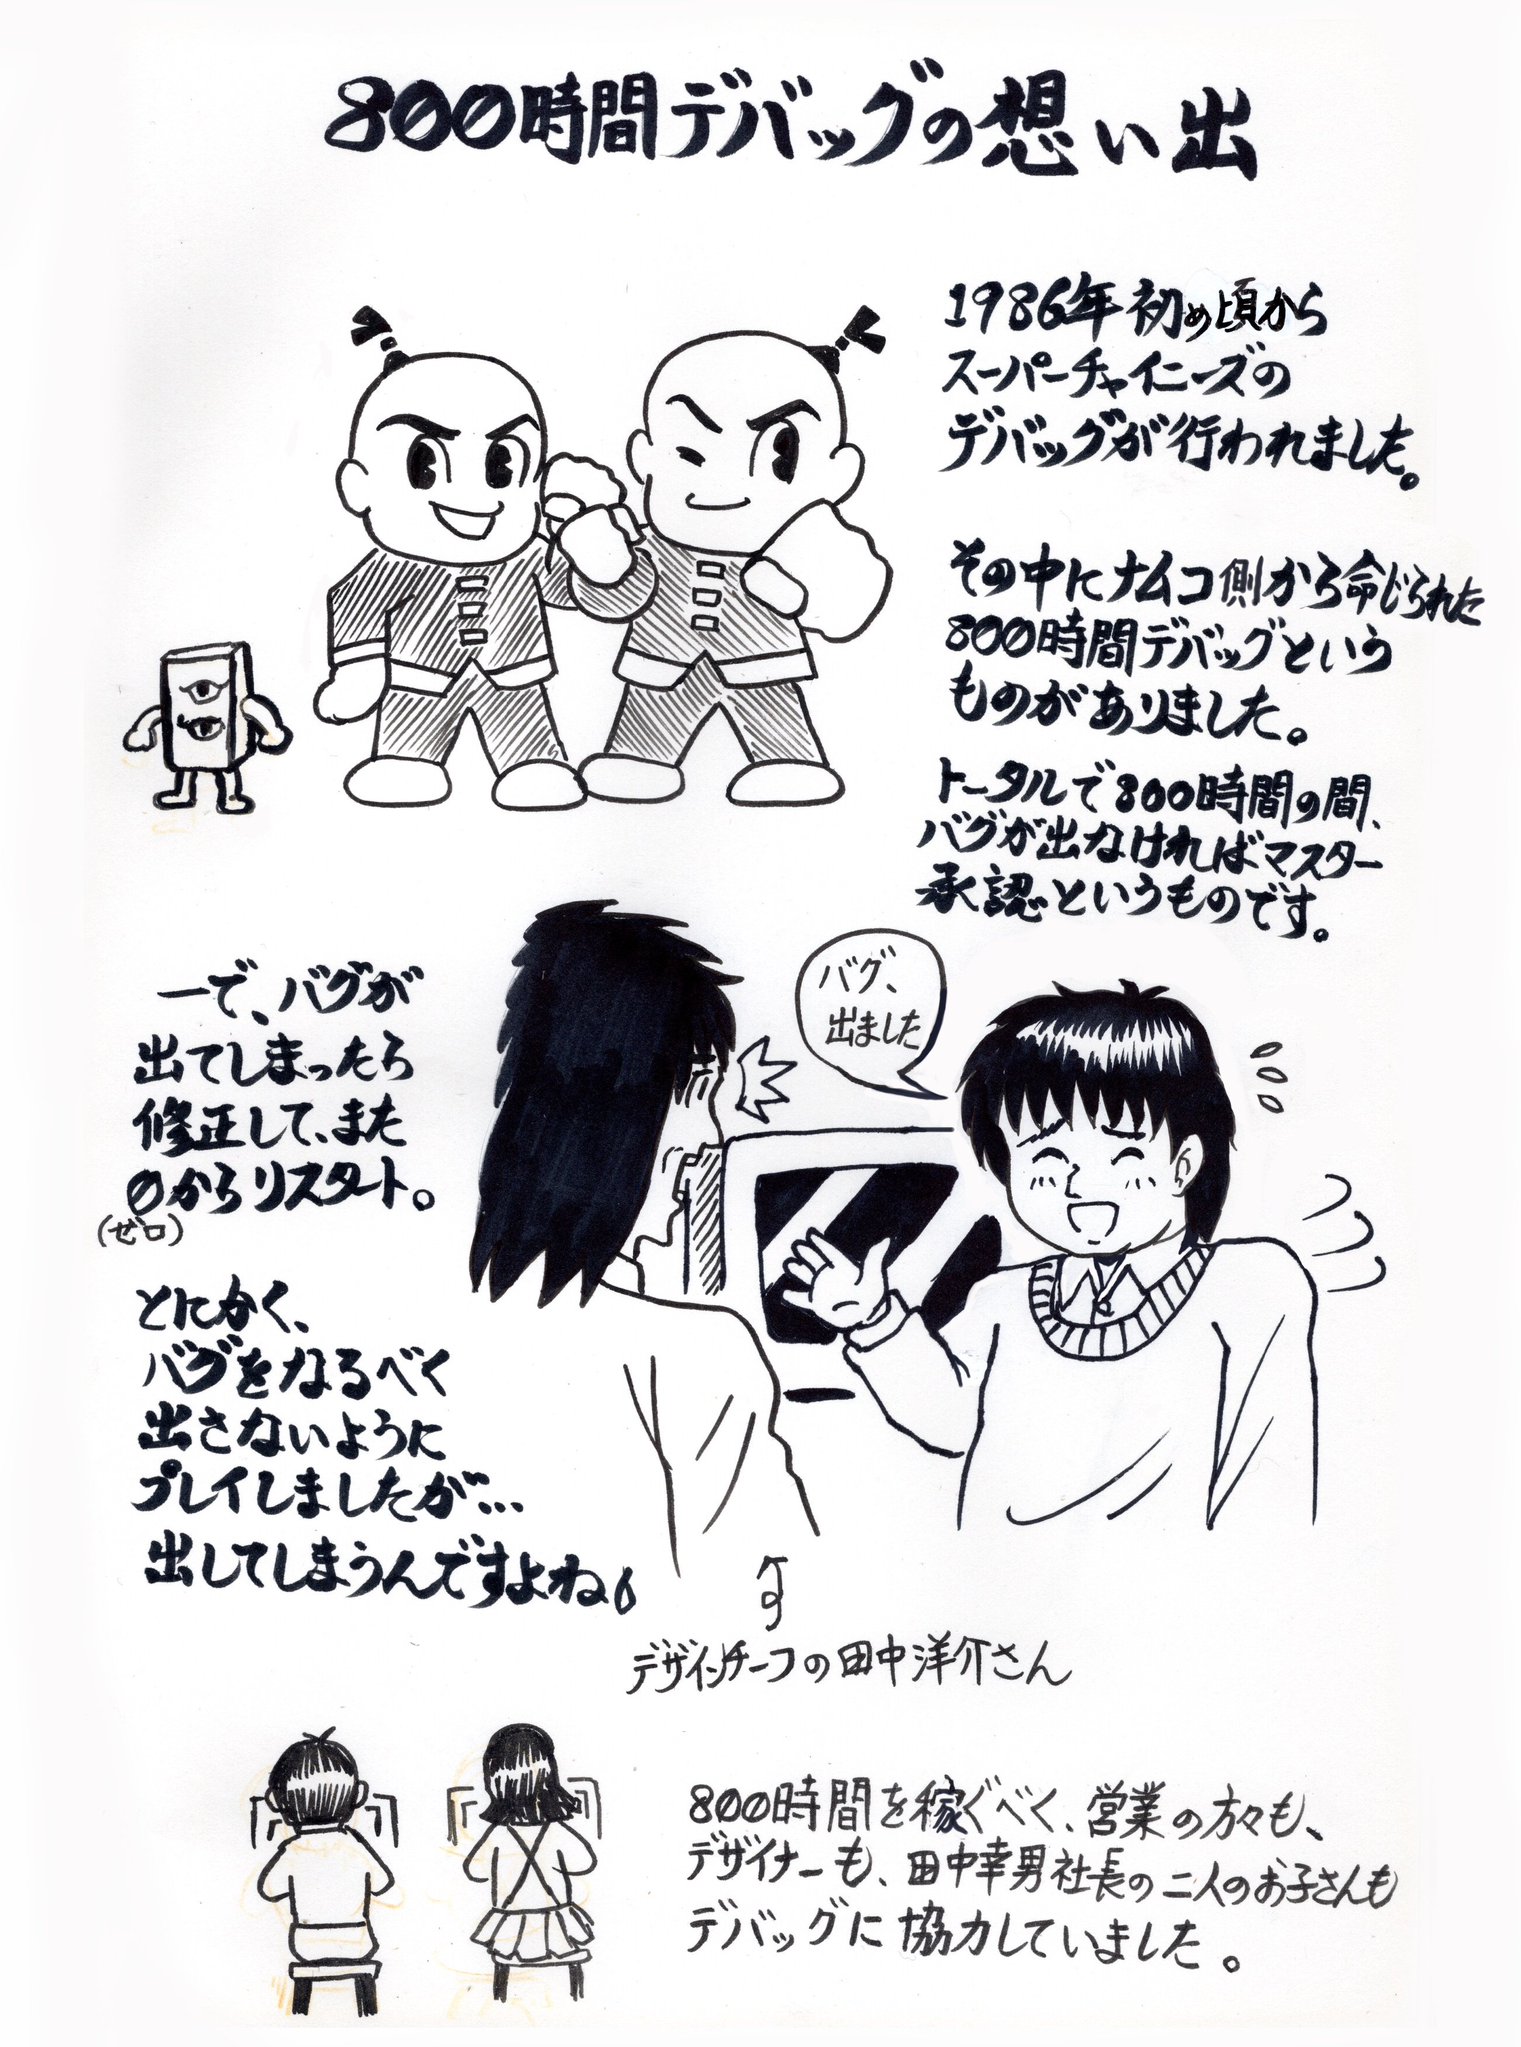 800時間デバッグの想い出
1986年初め頃から
スーパーチャイニーズの
デバッグが行われました。
その中にナムコ側から命じられた
800時間デバッグという
ものがありました。
トータルで800時間の間、
バグが出なければマスター
承認というものです。
一で、バグが
出てしまったら
修正して、また
0からリスタート。
(ゼロ)
バグ、
出ました
とにかく、
バグをなるべく
出さないように
プレイしましたが…
出してしまうんですよね
デザインチーフの田中洋介さん
800時間を稼ぐべく、営業の方々も、
デザイナーも、田中幸男社長の二人のお子さんも
デバッグに協力していました。